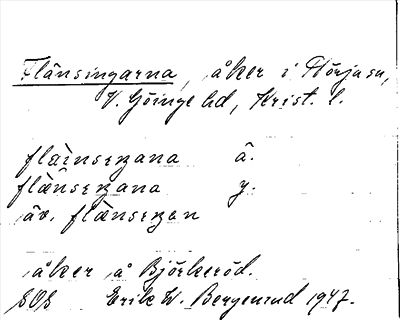 Flänsingarna, åker i Hörja sn,
V. Göinge hd, Krist. l.
flæ̀nseŋana ä.
flæ̀nseŋana y.
äv. flæ̀nseŋen
åker å Björkeröd.
SOS Erik W. Bergenrud 1947.